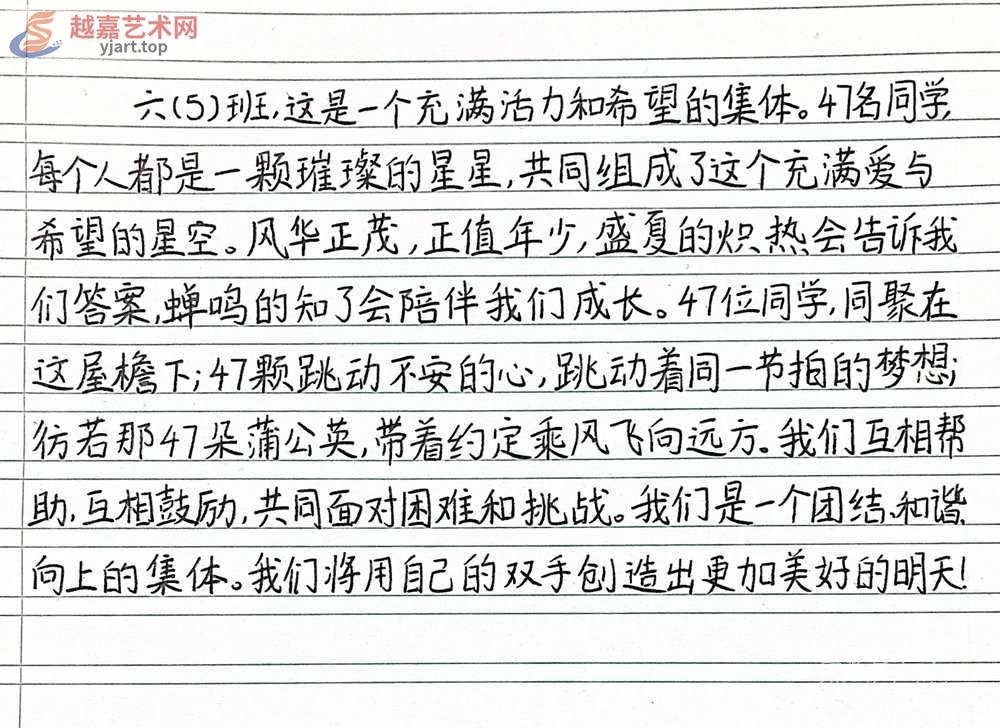 越嘉艺术网
yjart.top
六(5)班,这是一个充满活力和希望的集体。47名同学,
每个人都是一颗璀璨的星星,共同组成了这个充满爱与
希望的星空。风华正茂,正值年少,盛夏的炽热会告诉我
们答案,蝉鸣的知了会陪伴我们成长。47位同学,同聚在
这屋檐下;47颗跳动不安的心,跳动着同一节拍的梦想;
彷若那47朵蒲公英,带着约定乘风飞向远方。我们互相帮
助,互相鼓励,共同面对困难和挑战。我们是一个团结、和谐、
向上的集体。我们将用自己的双手创造出更加美好的明天!